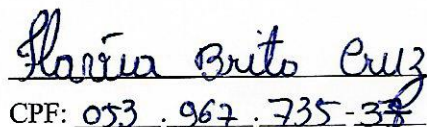 Flavia Brito Cruz
CPF: 053.967.735-38